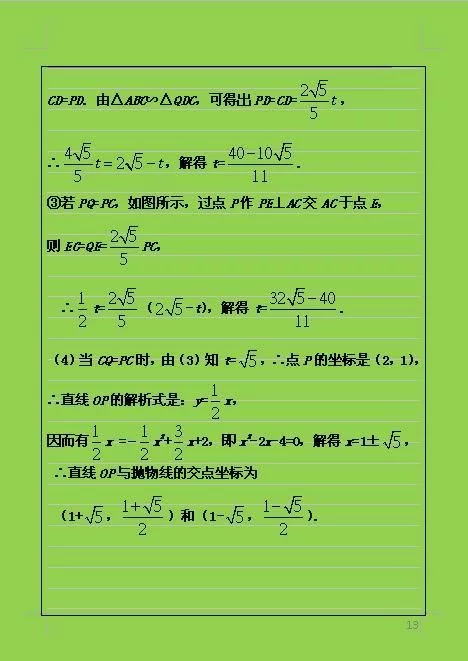 CD=PD. 由△ABC∽△QDC, 可得出 PD=CD=\frac{2\sqrt{5}}{5}t,
∴\frac{4\sqrt{5}}{5}t=2\sqrt{5}-t, 解得 t=\frac{40-10\sqrt{5}}{11}.
③若 PQ=PC, 如图所示, 过点 P 作 PE⊥AC 交 AC 于点 E,
则 EC=QE=\frac{2\sqrt{5}}{5}PC,
∴\frac{1}{2}t=\frac{2\sqrt{5}}{5}(2\sqrt{5}-t), 解得 t=\frac{32\sqrt{5}-40}{11}.
(4)当 CQ=PC 时, 由(3)知 t=\sqrt{5}, ∴点 P 的坐标是(2, 1),
∴直线 OP 的解析式是: y=\frac{1}{2}x,
因而有\frac{1}{2}x=-\frac{1}{2}x²+\frac{3}{2}x+2, 即 x²-2x-4=0, 解得 x=1±\sqrt{5},
∴直线 OP 与抛物线的交点坐标为
(1+\sqrt{5}, \frac{1+\sqrt{5}}{2})和(1-\sqrt{5}, \frac{1-\sqrt{5}}{2}).
13